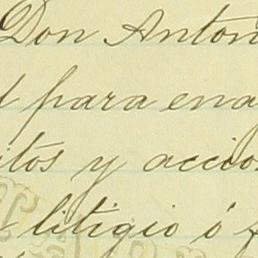 Don Anton
d para ena
itos y accio
litigio ó f